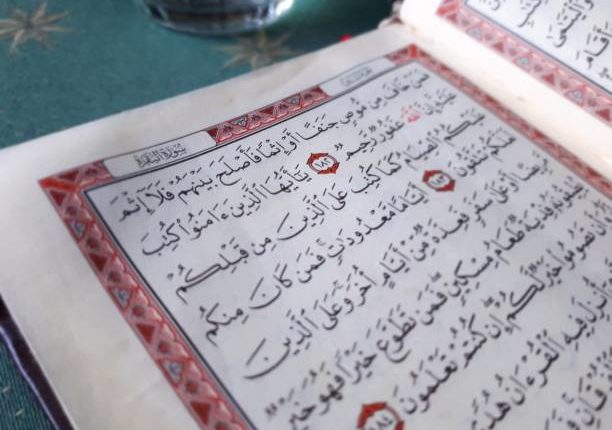 سورة البقرة
فَمَنْ خَافَ مِن مُّوصٍ جَنَفًا أَوْ إِثْمًا فَأَصْلَحَ بَيْنَهُمْ فَلَآ إِثْمَ
عَلَيْهِ إِنَّ ٱللَّهَ غَفُورٌ رَّحِيمٌ ١٨٢ يَٰٓأَيُّهَا ٱلَّذِينَ ءَامَنُوا۟ كُتِبَ
عَلَيْكُمُ ٱلصِّيَامُ كَمَا كُتِبَ عَلَى ٱلَّذِينَ مِن قَبْلِكُمْ
لَعَلَّكُمْ تَتَّقُونَ ١٨٣ أَيَّامًا مَّعْدُودَٰتٍ فَمَن كَانَ مِنكُم
مَّرِيضًا أَوْ عَلَىٰ سَفَرٍ فَعِدَّةٌ مِّنْ أَيَّامٍ أُخَرَ وَعَلَى ٱلَّذِينَ
يُطِيقُونَهُۥ فِدْيَةٌ طَعَامُ مِسْكِينٍ فَمَن تَطَوَّعَ خَيْرًا فَهُوَ خَيْرٌ
وَأَن تَصُومُوا۟ خَيْرٌ لَّكُمْ إِن كُنتُمْ تَعْلَمُونَ ١٨٤
أُنزِلَ فِيهِ ٱلْقُرْءَانُ هُدًى